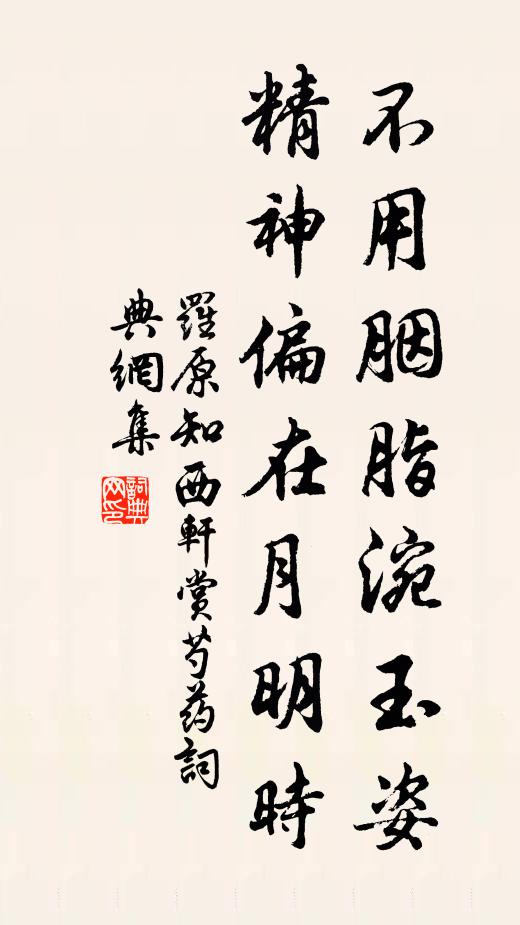 不用胭脂涴玉姿
精神偏在月明時
羅原知西軒賞芍药詞
典網集
詞典
网印